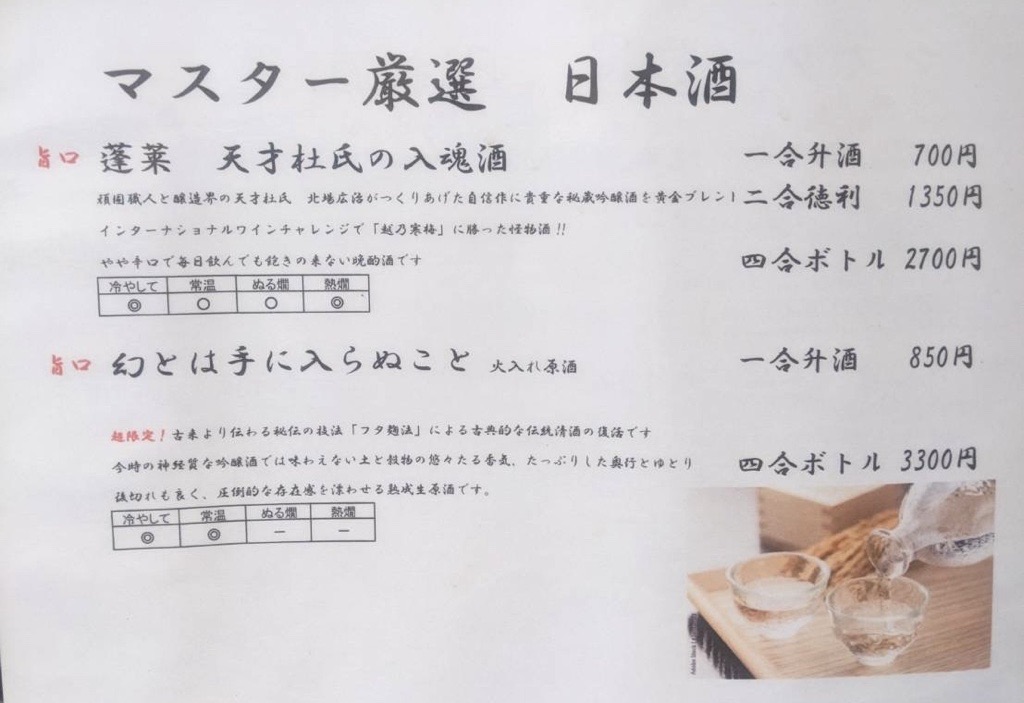 マスター厳選 日本酒
旨口 蓬莱 天才杜氏の入魂酒 一合升酒 700円
頑固職人と醸造界の天才杜氏 北場広治がつくりあげた自信作に貴重な秘蔵吟醸酒を黄金ブレント 二合徳利 1350円
インターナショナルワインチャレンジで「越乃寒梅」に勝った怪物酒!!
やや辛口で毎日飲んでも飽きの来ない晩酌酒です 四合ボトル 2700円
冷やして 常温 ぬる燗 熱燗
◎ ○ ○ ◎
旨口 幻とは手に入らぬこと 火入れ原酒 一合升酒 850円
超限定!古来より伝わる秘伝の技法「フタ麹法」による古典的な伝統清酒の復活です
今時の神経質な吟醸酒では味わえない土と穀物の悠々たる香気、たっぷりした奥行とゆとり 四合ボトル 3300円
後切れも良く、圧倒的な存在感を漂わせる熟成生原酒です。
冷やして 常温 ぬる燗 熱燗
◎ ◎ ー ー
Adobe Stock